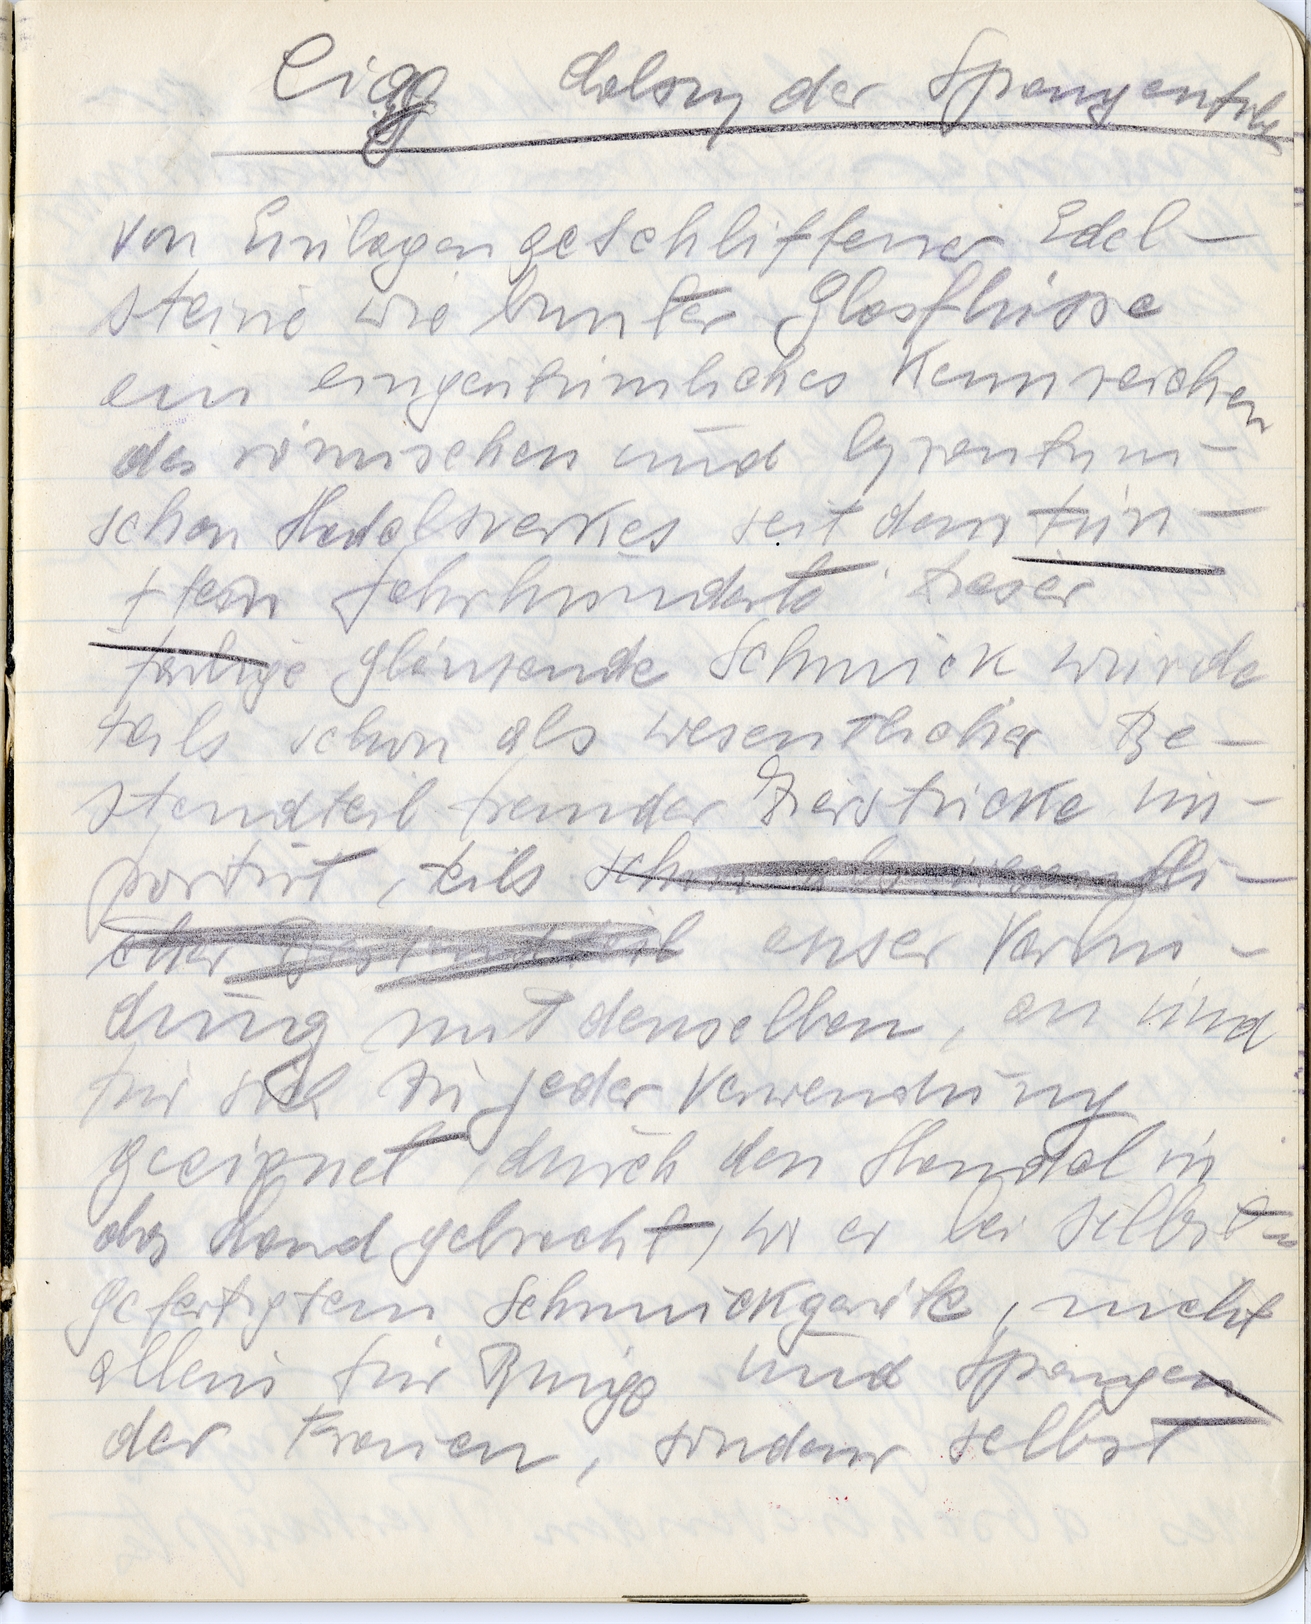 der Spangenfibe
von Einlagen geschliffener Edel-
steine wie bunter Glasflüsse
ein eingentümliches Kennzeichen
des römischen und byzantini-
schen Handelswerkes seit dem fün-
ften Jahrhundert. Dieser
farbige glänzende Schmuck wurde
teils schon als wesentlicher Be-
standteil fremder Zierstücke im-
portirt, teils schon als wesentli-
cher Bestandteil ausser Verbin-
dung mit denselben, an und
für sich zu jeder Verwendung
geeignet durch den Handel in
das Land gebracht, wo er bei selbst-
gefertigtem Schmuckgeräte, nicht
allein für Ringe und Spangen
der Frauen, sondern selbst